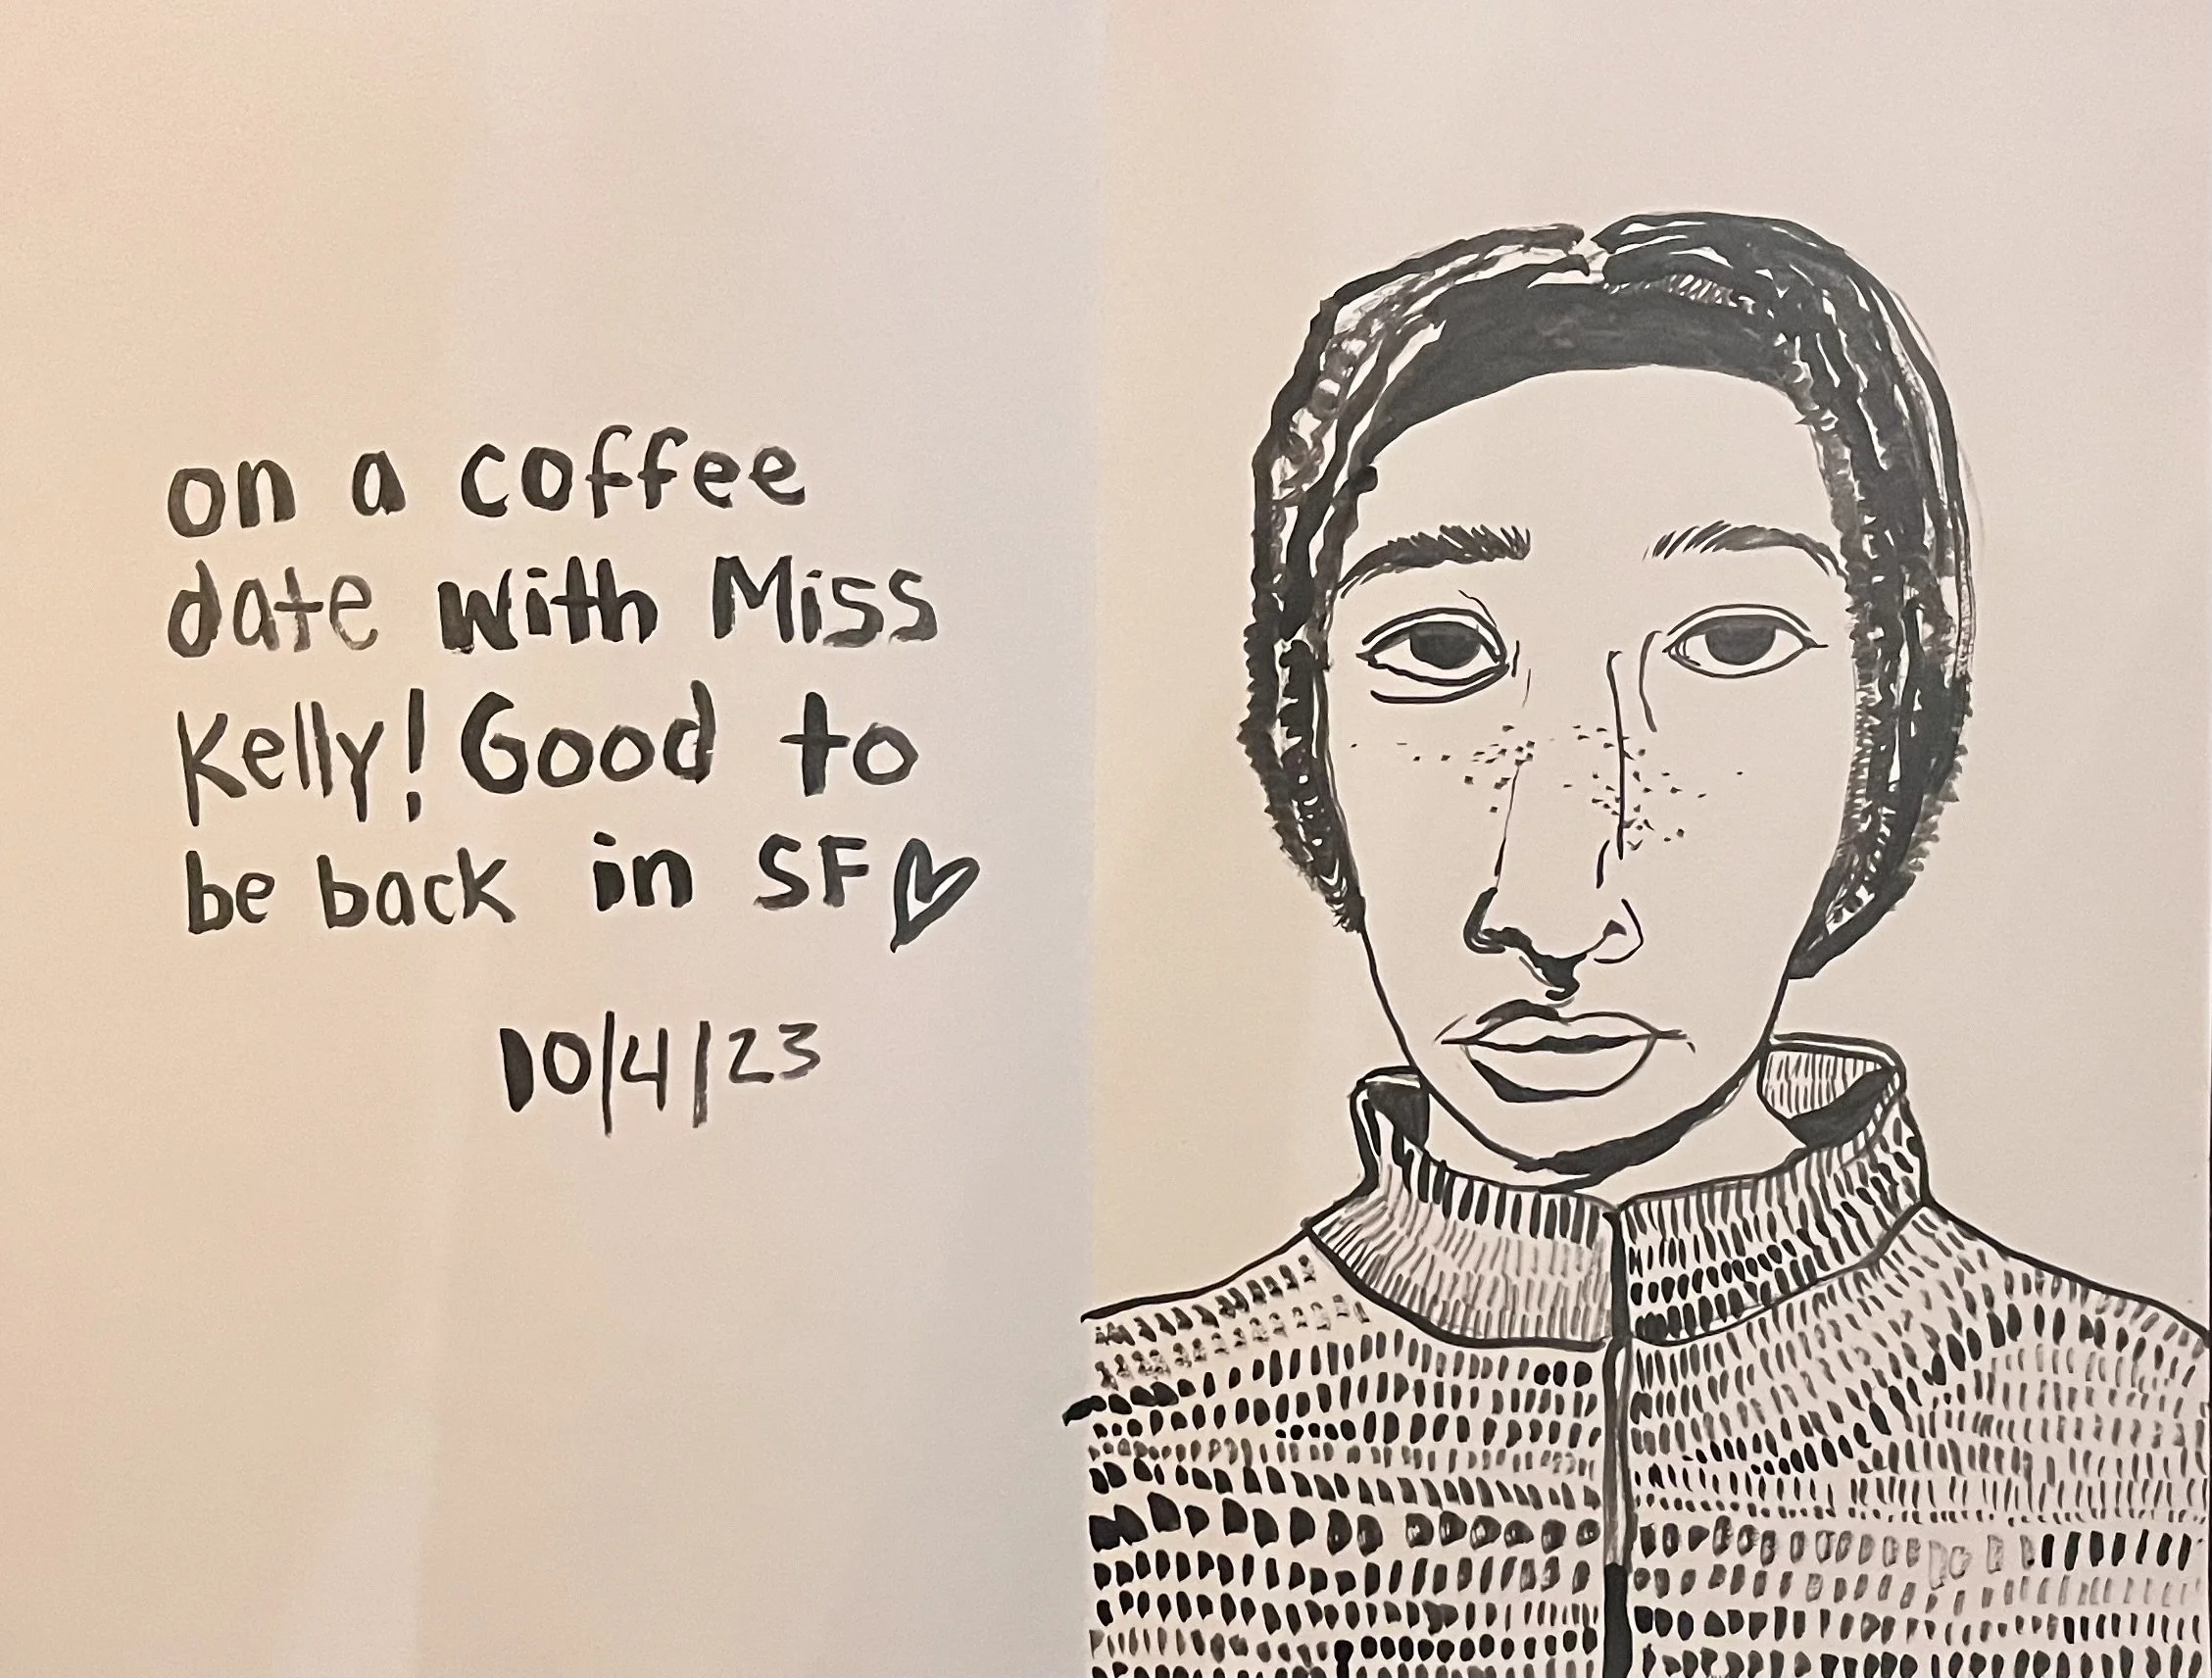 on a coffee
date with Miss
Kelly! Good to
be back in SF♡
10/4/23